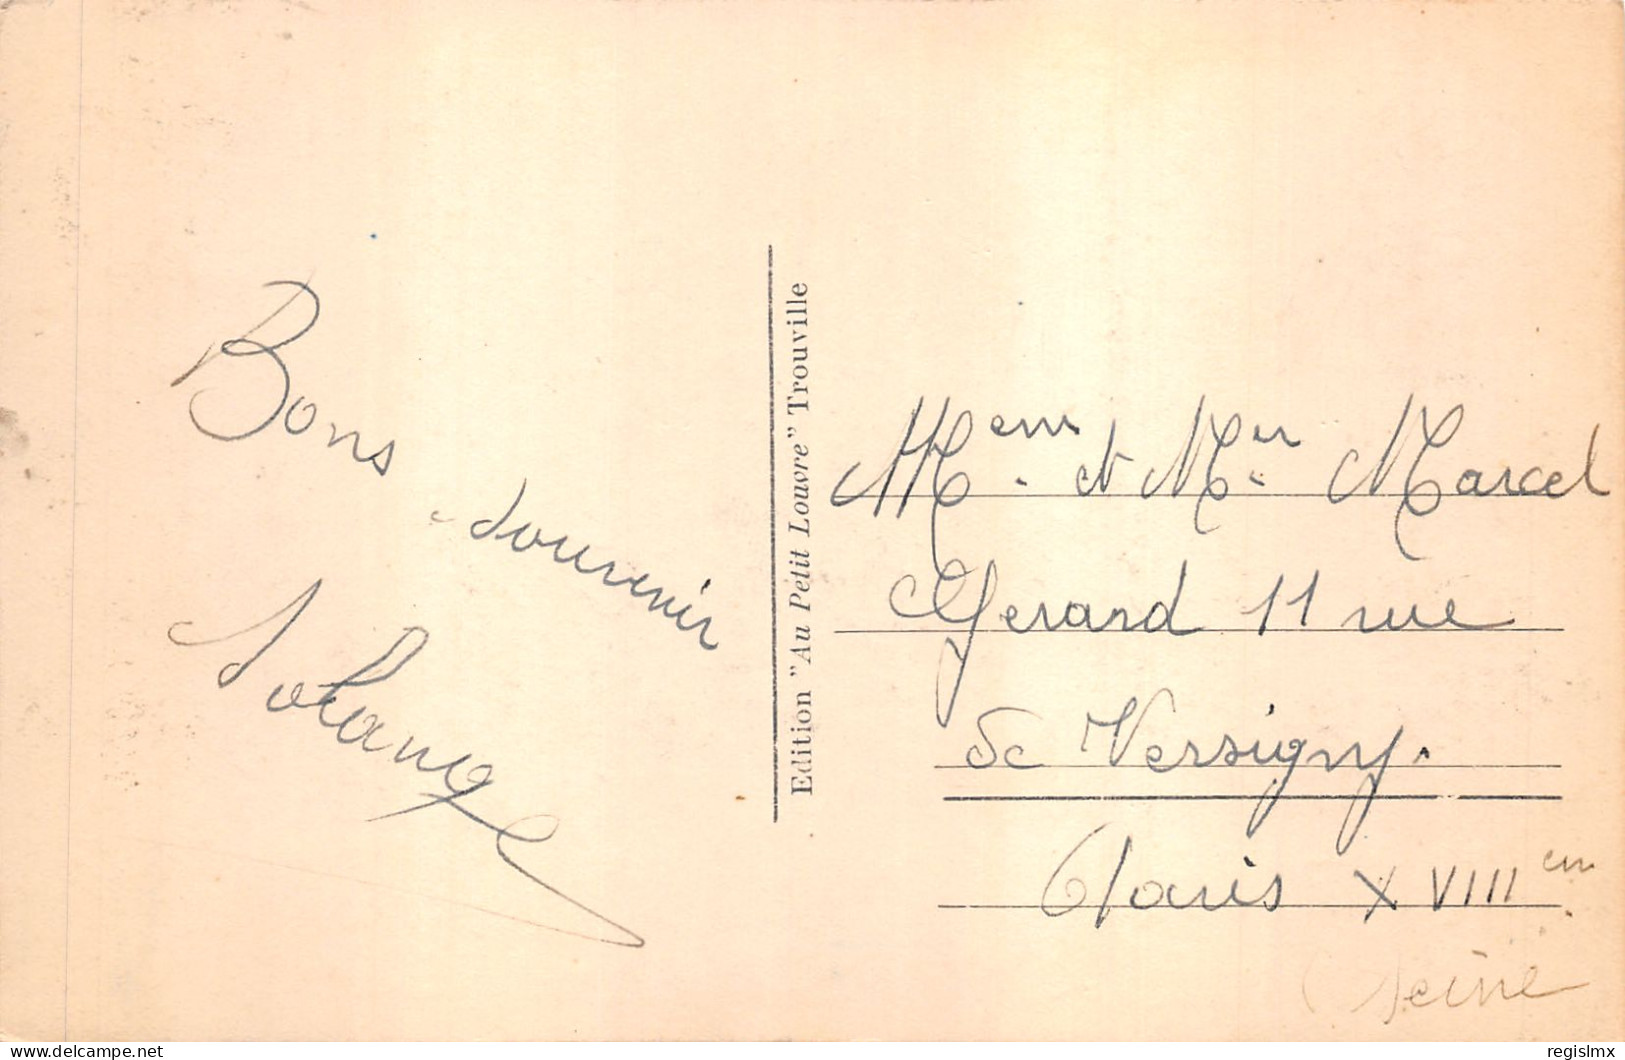 Bons
souvenir
Solange
Edition "Au Petit Louvre" Trouville
Mem. et Mer. Marcel
Gerard 11 rue
de Versigny.
Paris XVIIIem.
Seine
delcampe.net
regislmx